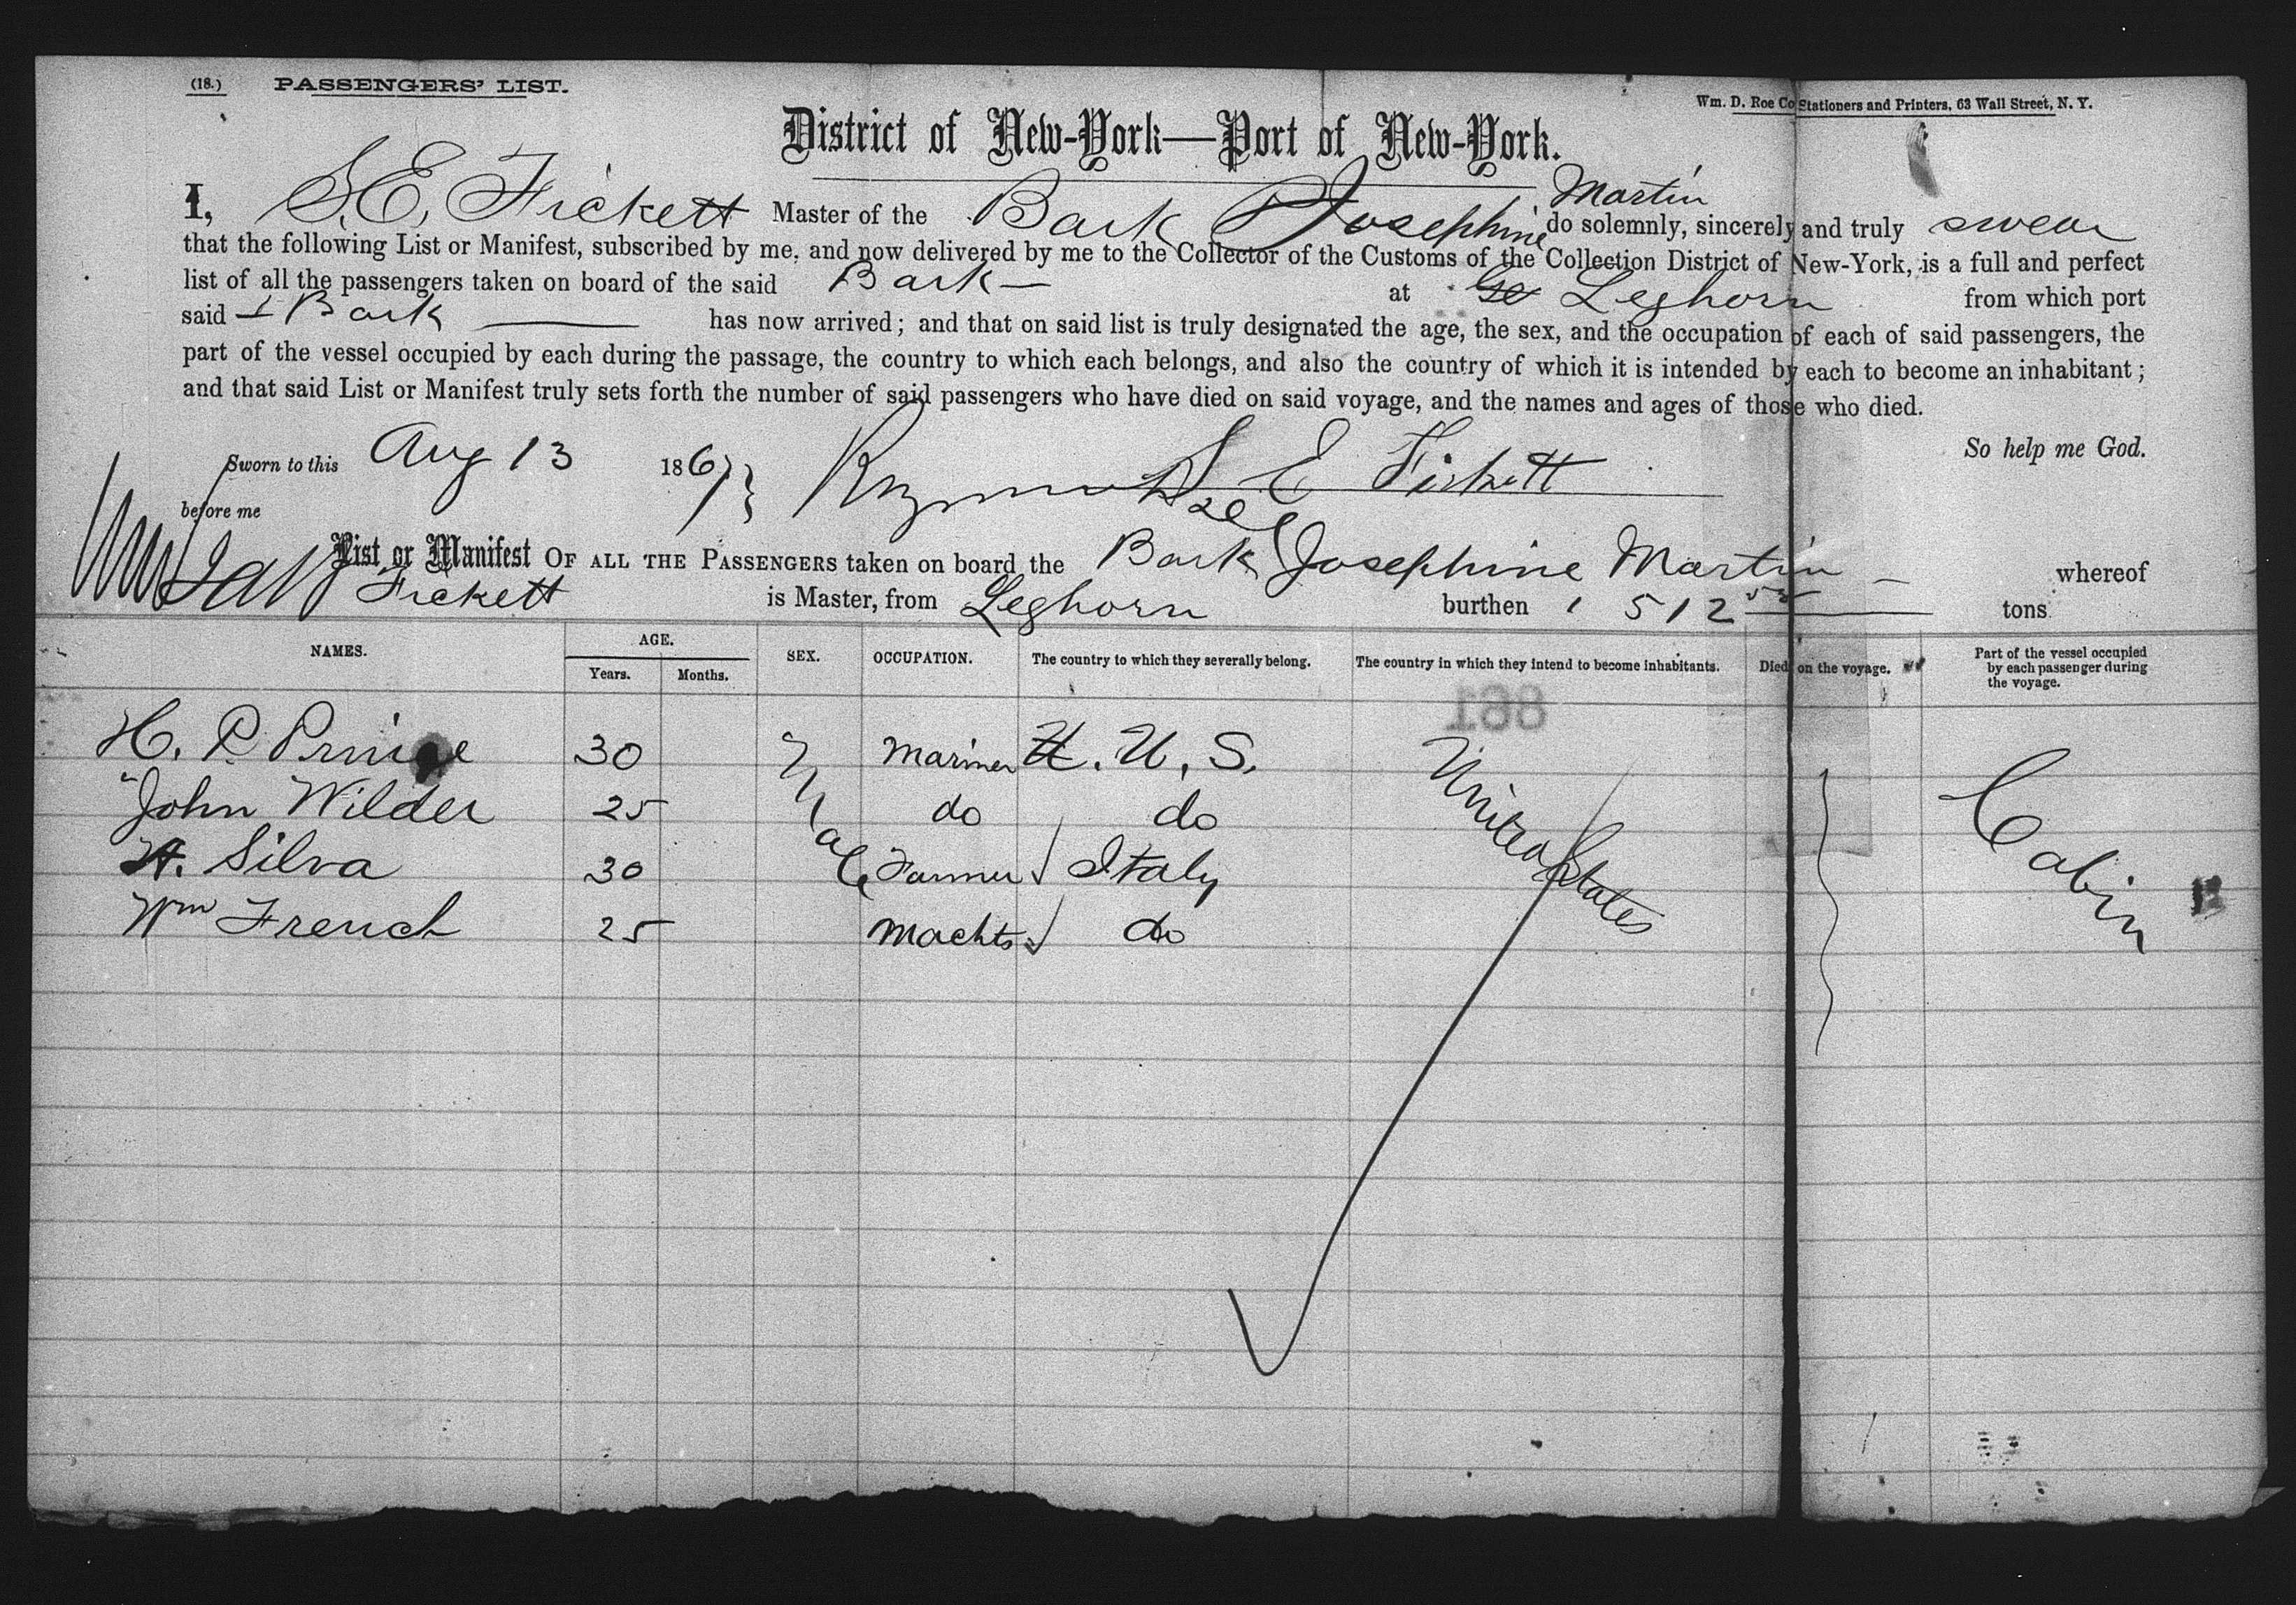 (18.) PASSENGERS' LIST.
Wm. D. Roe Co Stationers and Printers, 63 Wall Street, N. Y.
District of New-York—Port of New-York.
Martin
I, S. E. Fickett Master of the Bark Josephine do solemnly, sincerely and truly swear
that the following List or Manifest, subscribed by me, and now delivered by me to the Collector of the Customs of the Collection District of New-York, is a full and perfect
list of all the passengers taken on board of the said Bark at Leghorn from which port
said Bark has now arrived; and that on said list is truly designated the age, the sex, and the occupation of each of said passengers, the
part of the vessel occupied by each during the passage, the country to which each belongs, and also the country of which it is intended by each to become an inhabitant;
and that said List or Manifest truly sets forth the number of said passengers who have died on said voyage, and the names and ages of those who died.
So help me God.
Sworn to this Aug 13 1867 S E Fickett
before me
List or Manifest OF ALL THE PASSENGERS taken on board the Bark Josephine Martin whereof
Fickett is Master, from Leghorn burthen 512 tons
NAMES. AGE. Years. Months. SEX. OCCUPATION. The country to which they severally belong. The country in which they intend to become inhabitants. Died on the voyage. Part of the vessel occupied by each passenger during the voyage.
861
H. P. Prince 30 Male Mariner U. S. United States Cabin
John Wilder 25 do do
A. Silva 30 Farmer Italy
Wm French 25 Machts do